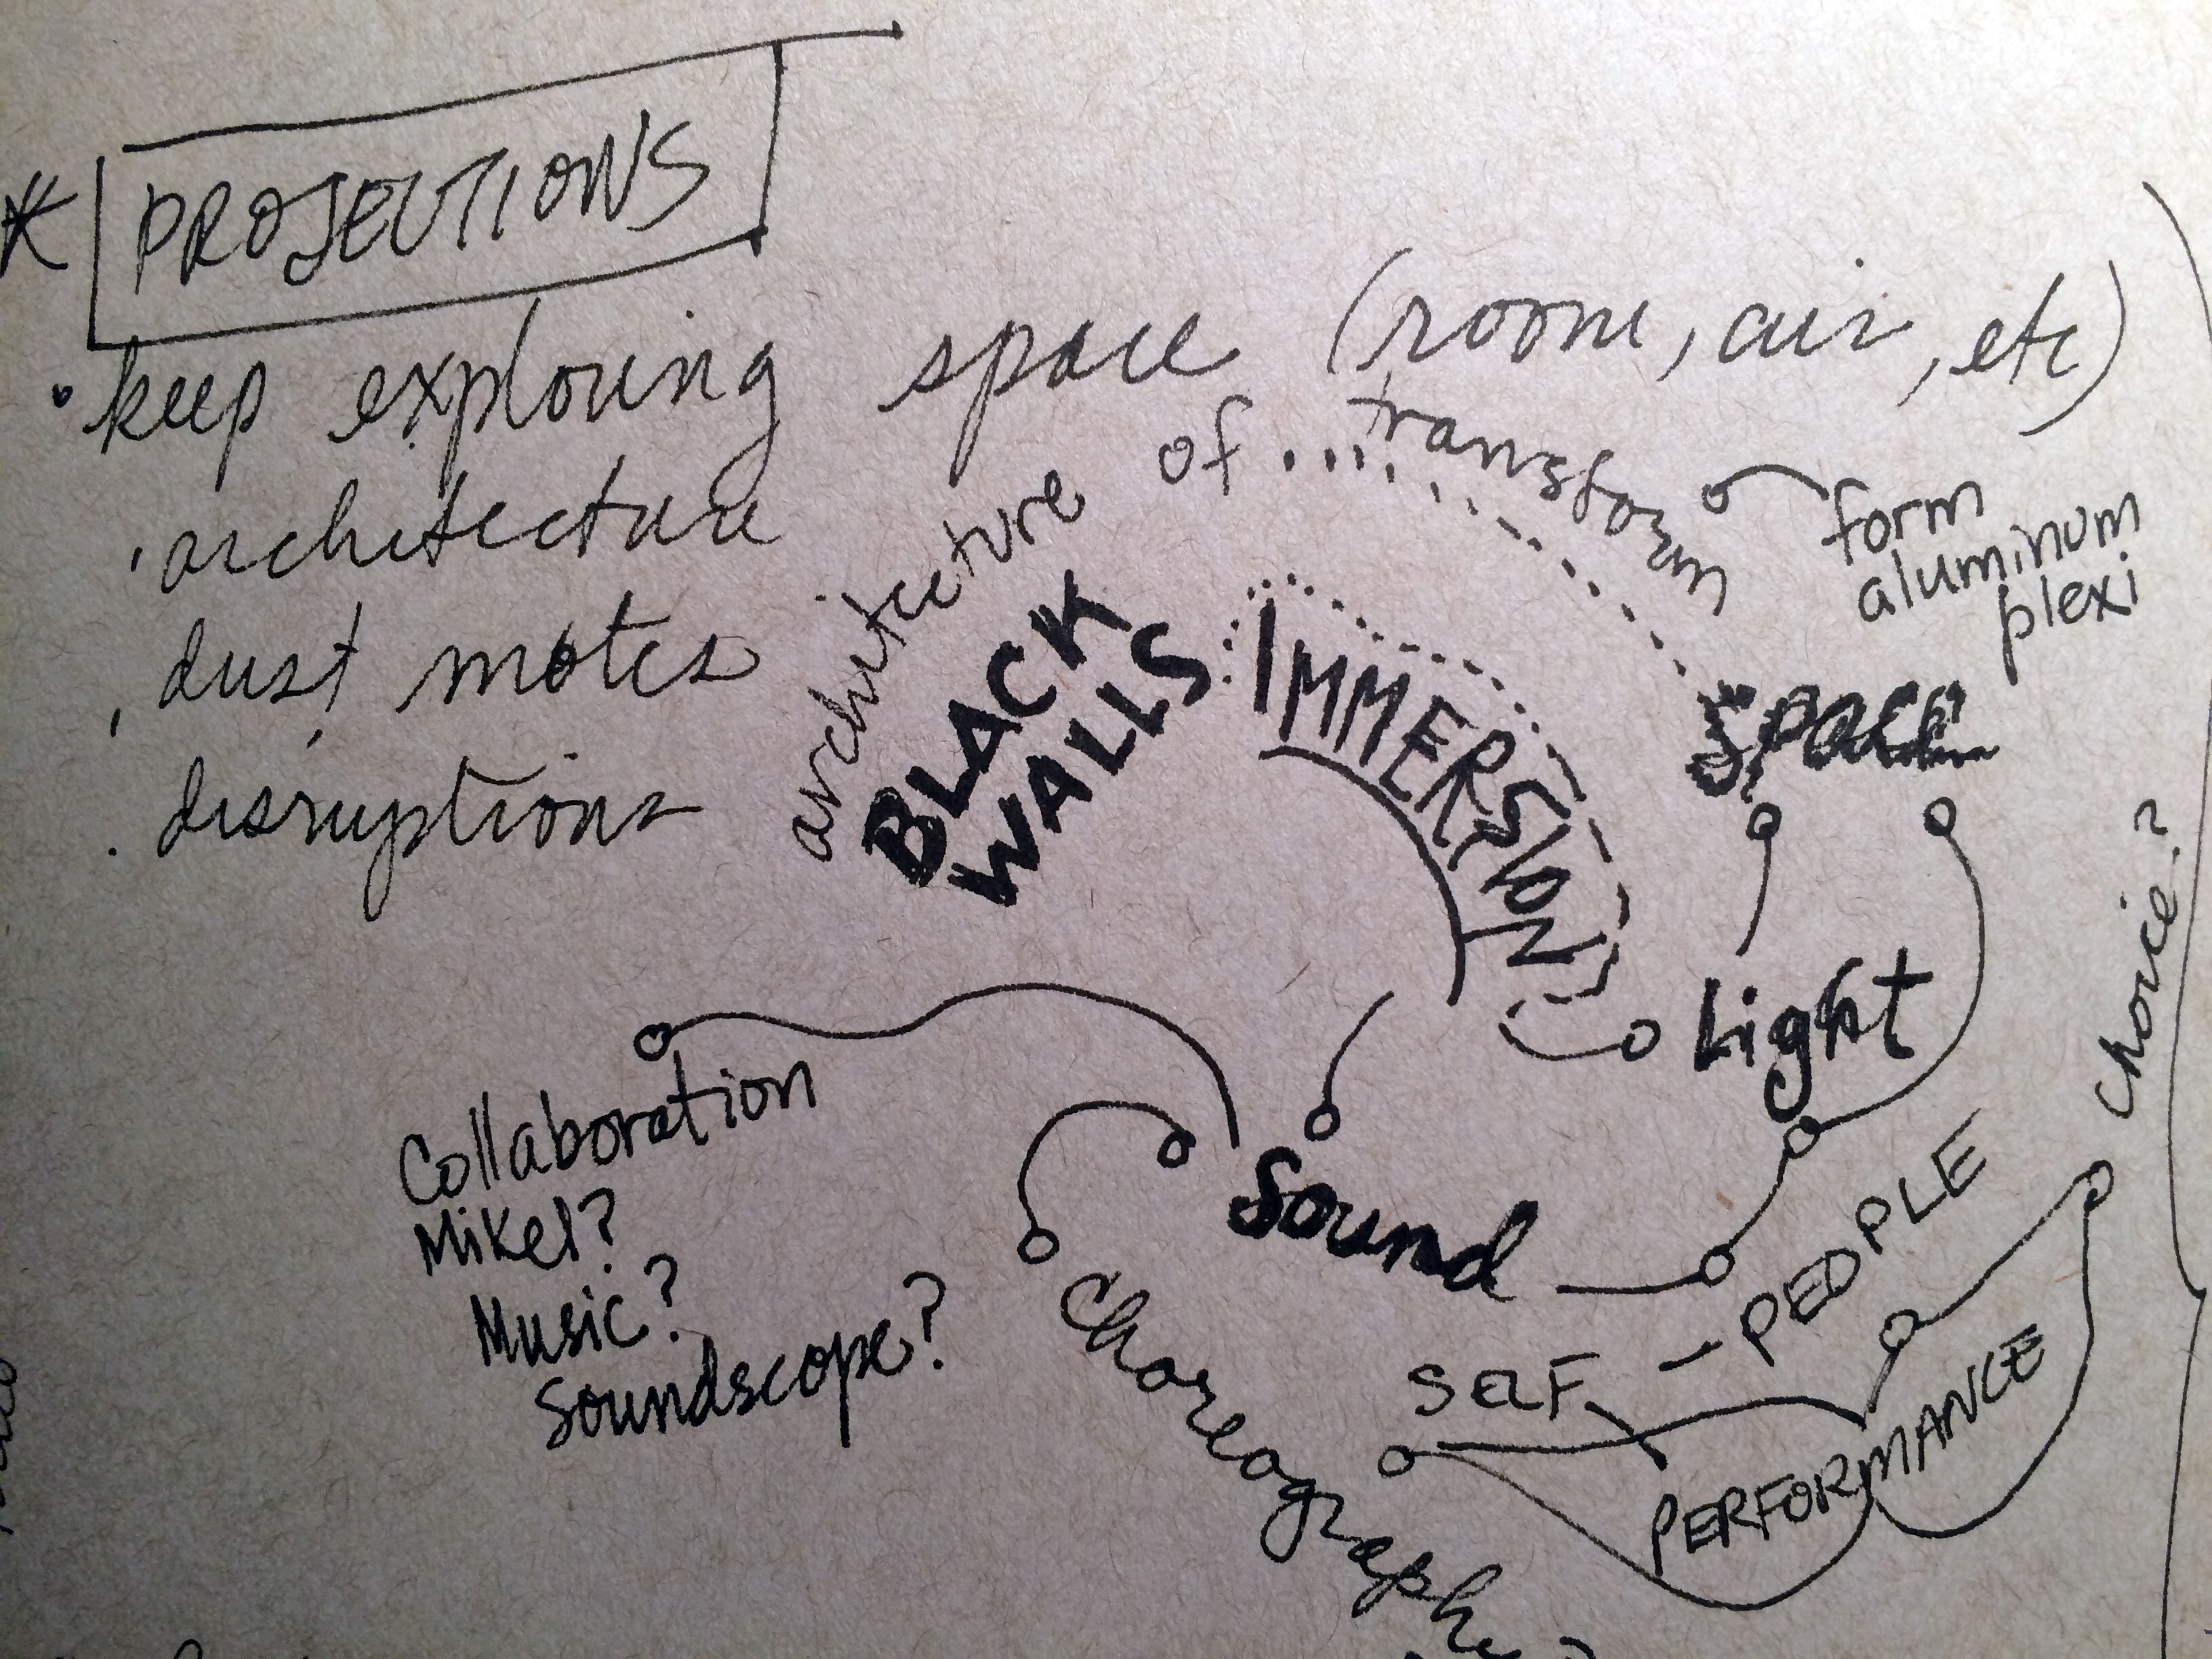 * PROJECTIONS
• keep exploring space (room, air, etc)
architecture
dust motes
. disruptions
architecture of .... transform
form
aluminum
plexi
BLACK
WALLS
IMMERSION
space
Light
choice?
Collaboration
Mikel?
Music?
Soundscope?
Sound
PEOPLE
SELF
PERFORMANCE